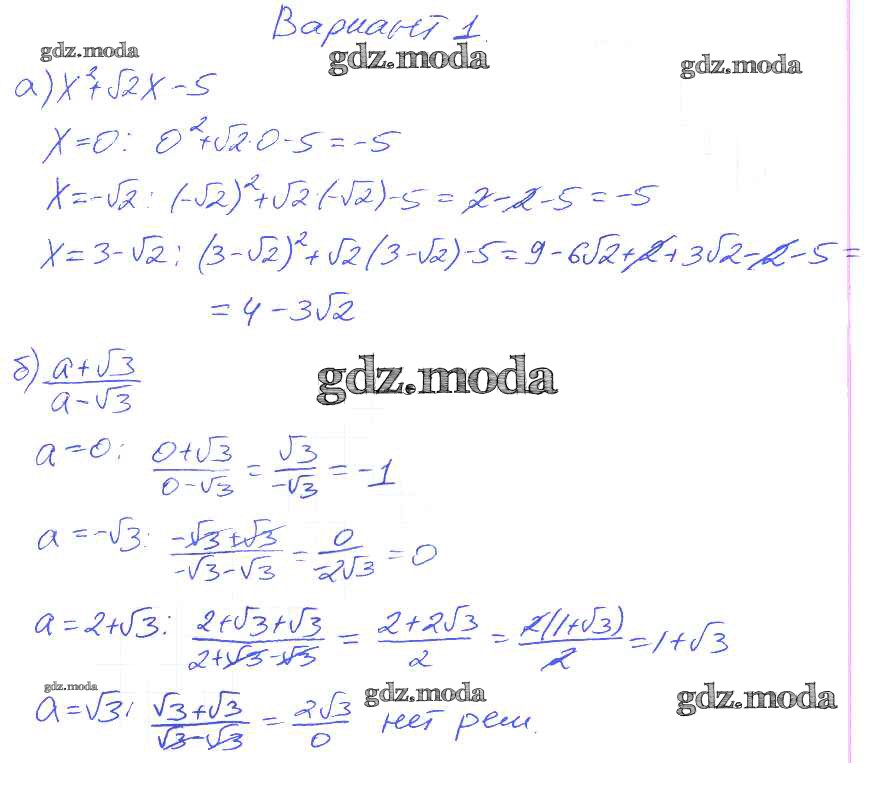 Вариант 1.
gdz.moda gdz.moda gdz.moda
а) x²+√2x-5
x=0: 0²+√2·0-5=-5
x=-√2: (-√2)²+√2·(-√2)-5=2-2-5=-5
x=3-√2: (3-√2)²+√2(3-√2)-5=9-6√2+2+3√2-2-5=
=4-3√2
б) (a+√3)/(a-√3)
gdz.moda
a=0: (0+√3)/(0-√3)=√3/(-√3)=-1
a=-√3: (-√3+√3)/(-√3-√3)=0/(-2√3)=0
a=2+√3: (2+√3+√3)/(2+√3-√3)=(2+2√3)/2=2(1+√3)/2=1+√3
gdz.moda gdz.moda gdz.moda
a=√3: (√3+√3)/(√3-√3)=2√3/0 нет реш.